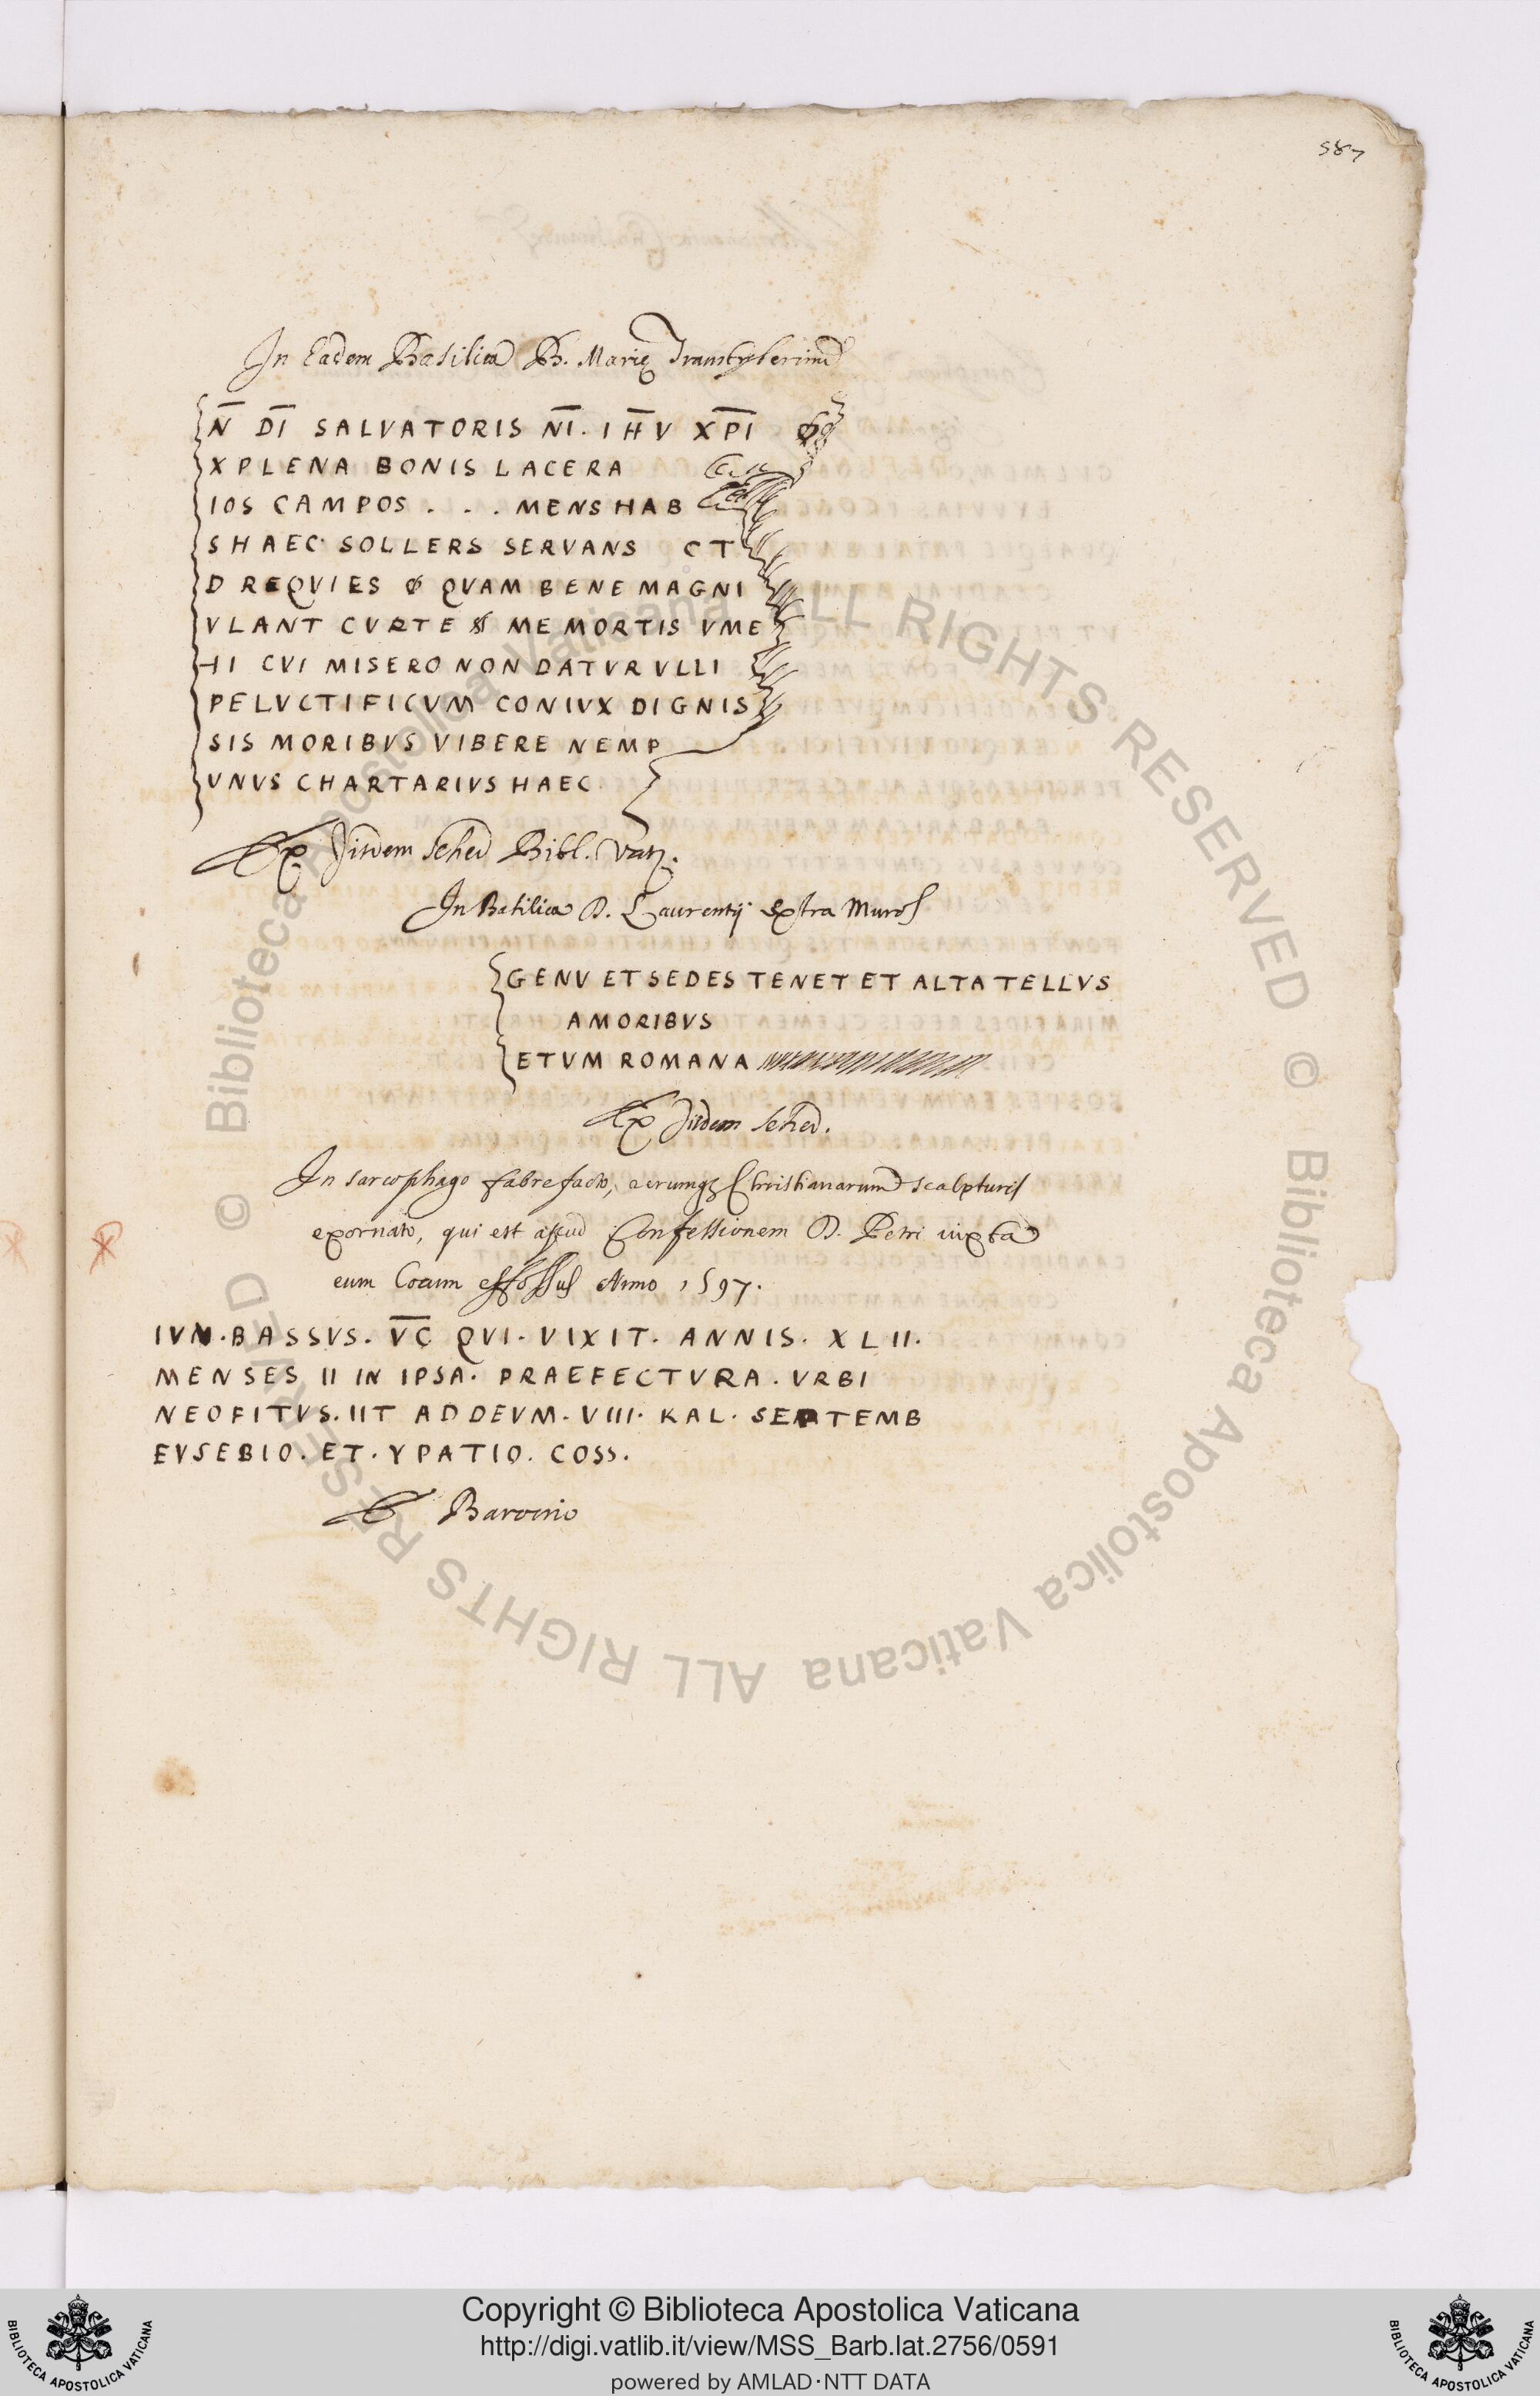 587
In Eadem Basilica B. Marię Transtyberim
N̅ D̅I̅ SALVATORIS N̅I̅. I H̅ V X̅P̅I̅
XPLENA BONIS LACERA
IOS CAMPOS . . . MENS HAB
SHAEC SOLLERS SERVANS CT
D REQVIES QVAM BENE MAGNI
VLANT CVRTE ME MORTIS VME
HI CVI MISERO NON DATVR VLLI
PELVCTIFICVM CONIVX DIGNIS
SIS MORIBVS VIBERE NEMP
VNVS CHARTARIVS HAEC
Ex Iisdem Sched Bibl. Vat.
In Basilica D. Laurentij extra Muros
GENV ET SEDES TENET ET ALTA TELLVS
AMORIBVS
ETVM ROMANA
Ex Iisdem Sched.
In sarcophago fabrefacto, rerumq; Christianarum sculpturis
exornato, qui est apud Confessionem D. Petri iuxta
eum Locum effossus Anno 1597.
IVN. BASSVS. V̅C̅ QVI. VIXIT. ANNIS. XLII.
MENSES II IN IPSA. PRAEFECTVRA. VRBI
NEOFITVS. IIT AD DEVM. VIII. KAL. SEPTEMB
EVSEBIO. ET. YPATIO. COSS.
Baronio
© Biblioteca Apostolica Vaticana ALL RIGHTS RESERVED © Biblioteca Apostolica Vaticana ALL RIGHTS RESERVED
Copyright © Biblioteca Apostolica Vaticana
http://digi.vatlib.it/view/MSS_Barb.lat.2756/0591
powered by AMLAD·NTT DATA
BIBLIOTECA APOSTOLICA VATICANA
BIBLIOTECA APOSTOLICA VATICANA